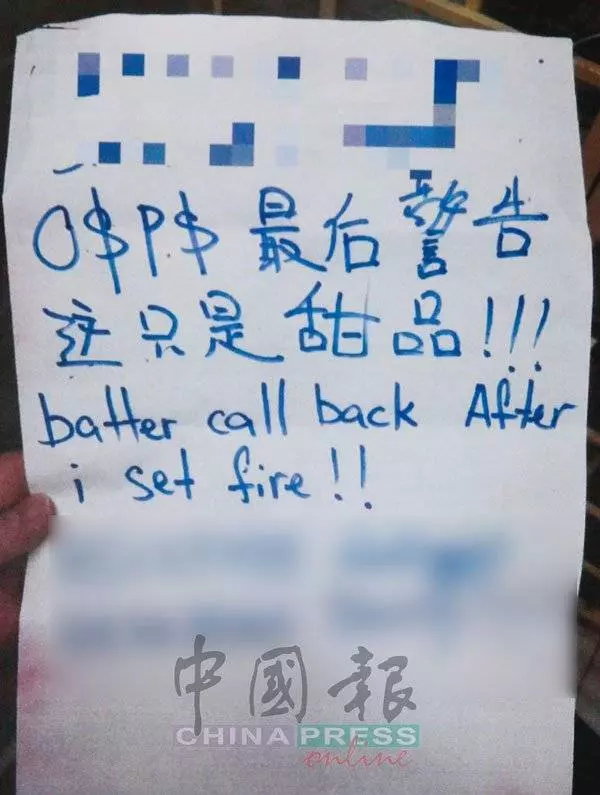 O$P$ 最后警告
这只是甜品!!!
batter call back After
i set fire!!
中國報
CHINA PRESS
online